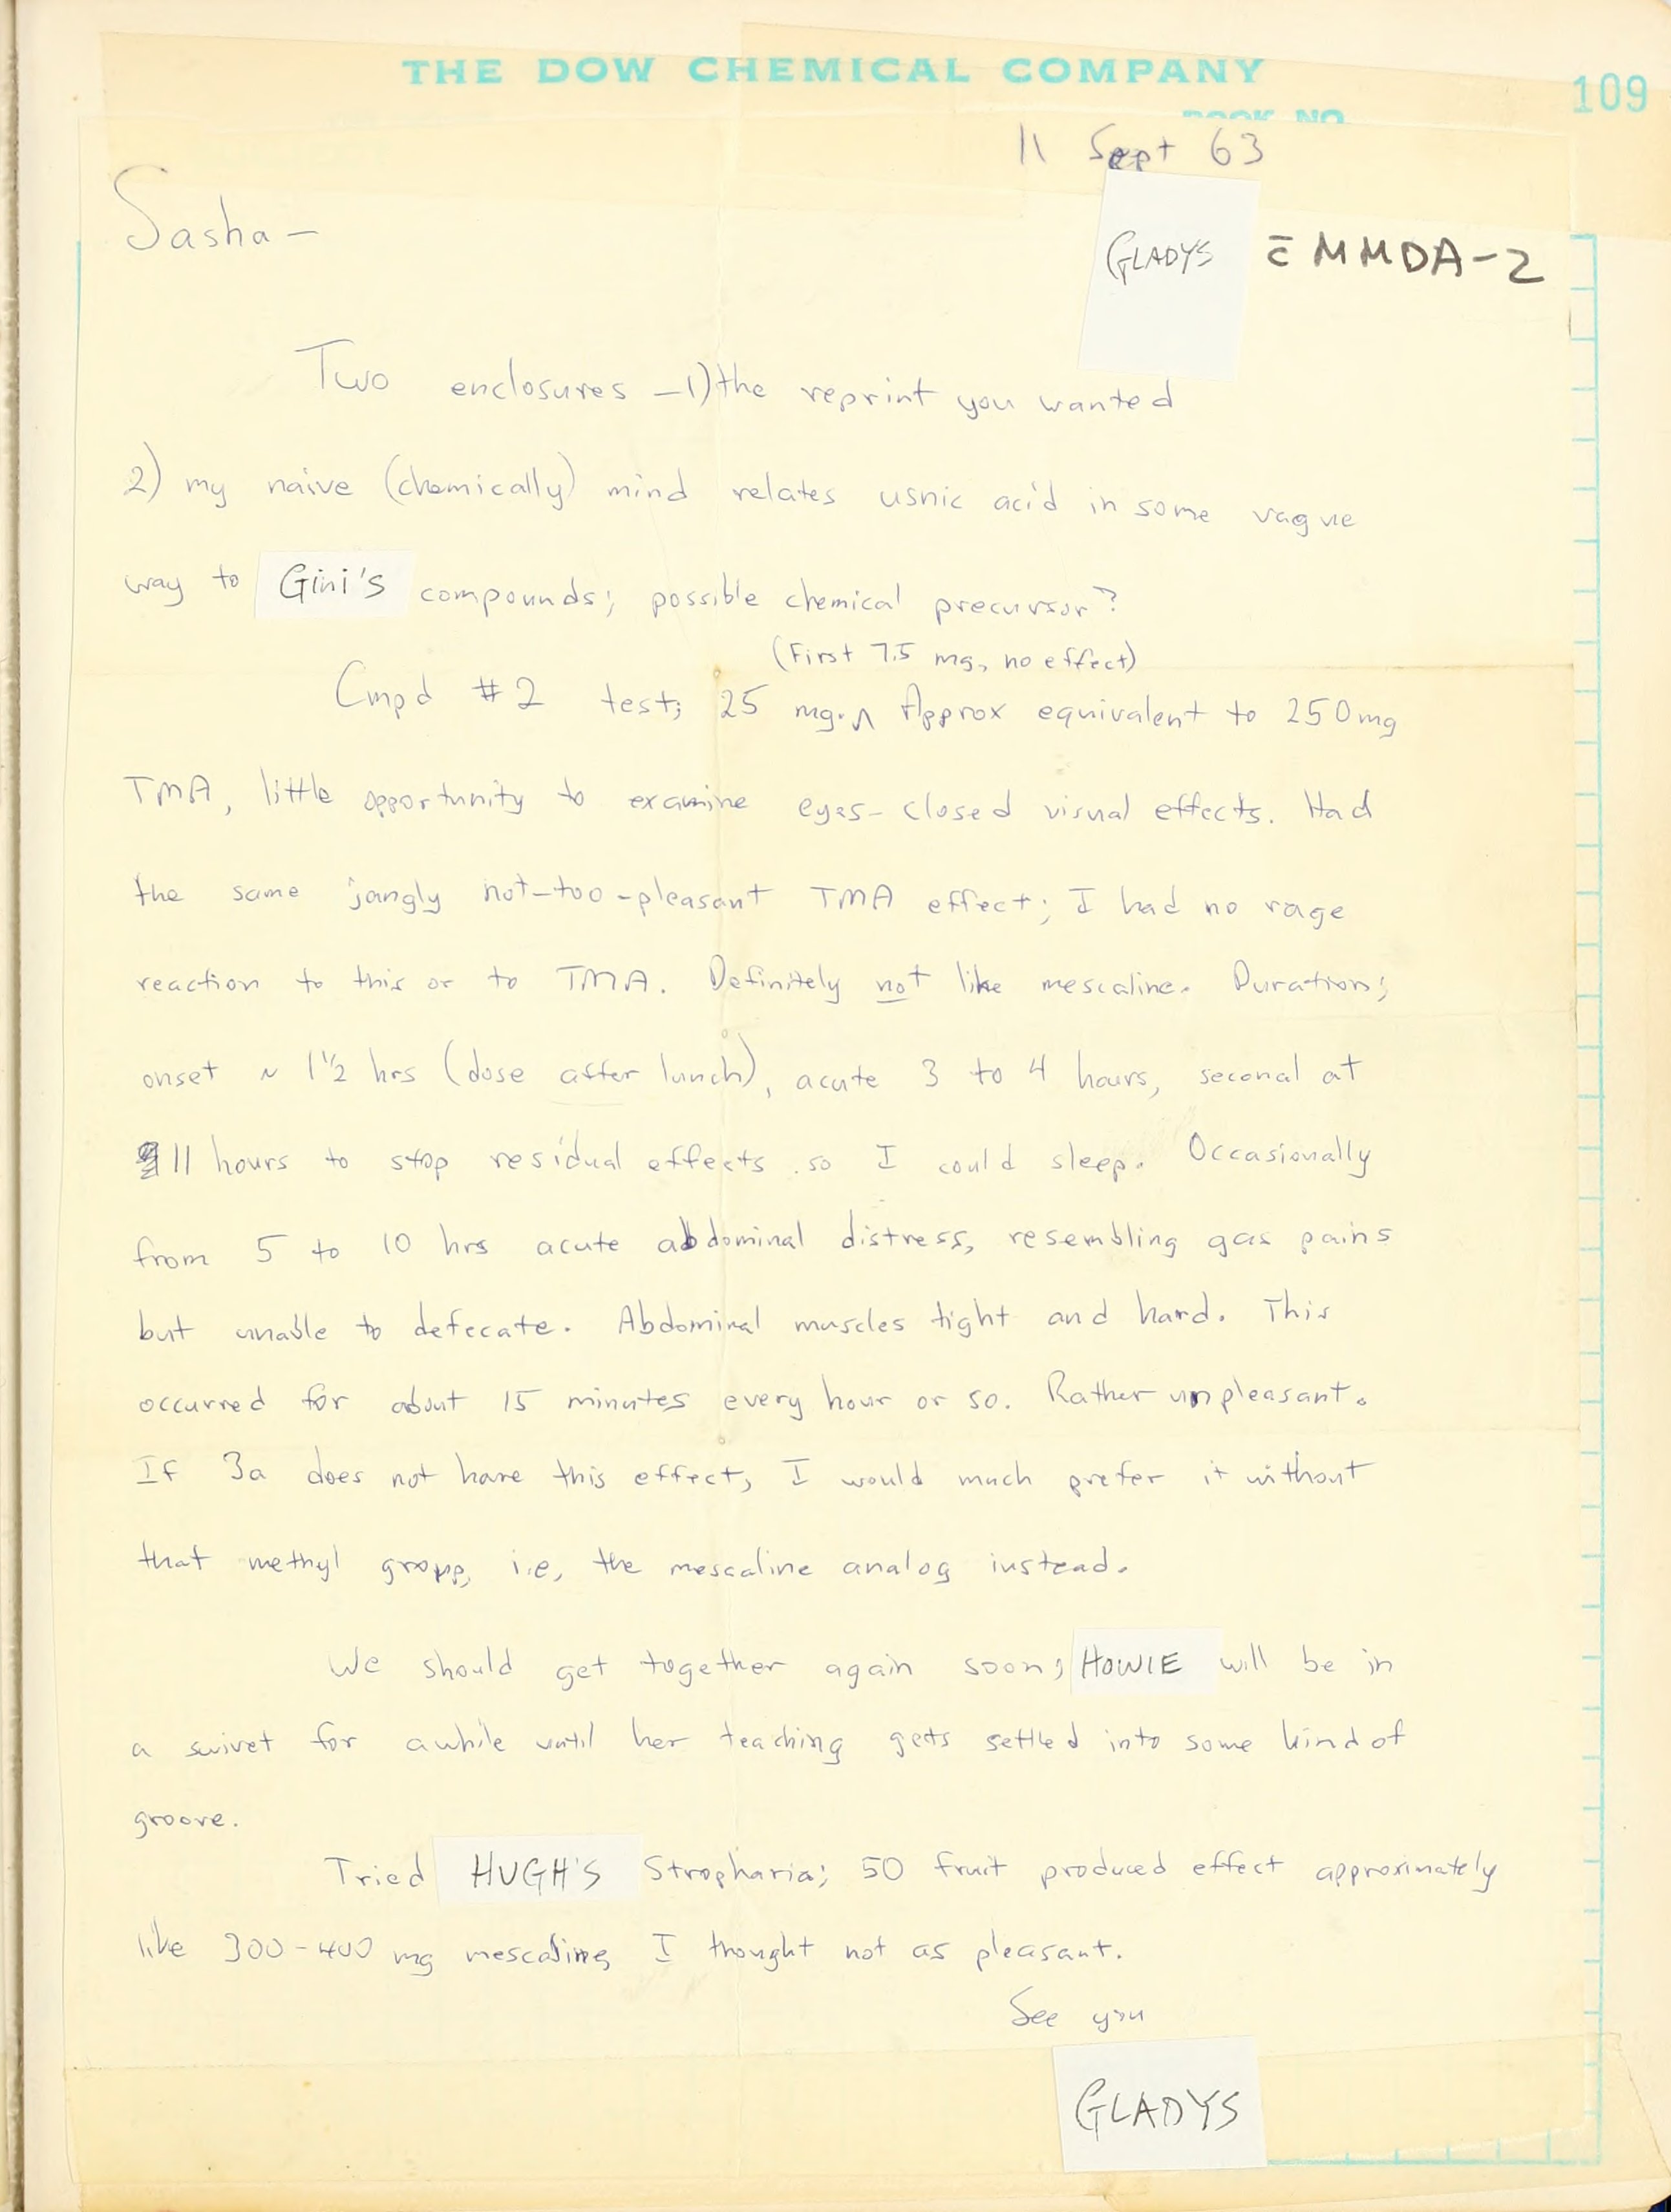 THE DOW CHEMICAL COMPANY
109
BOOK NO.
11 Sept 63
Sasha —
GLADYS c̄ MMDA-2
Two enclosures — 1) the reprint you wanted
2) my naive (chemically) mind relates usnic acid in some vague
way to Gini's compounds; possible chemical precursor?
(First 7.5 mg, no effect)
Cmpd #2 test; 25 mg. ^ Approx equivalent to 250 mg
TMA, little opportunity to examine eyes-closed visual effects. Had
the same jangly not-too-pleasant TMA effect; I had no rage
reaction to this or to TMA. Definitely not like mescaline. Duration;
onset ~ 1 1/2 hrs (dose after lunch), acute 3 to 4 hours, seconal at
11 hours to stop residual effects so I could sleep. Occasionally
from 5 to 10 hrs acute abdominal distress, resembling gas pains
but unable to defecate. Abdominal muscles tight and hard. This
occurred for about 15 minutes every hour or so. Rather unpleasant.
If 3a does not have this effect, I would much prefer it without
that methyl group, i.e, the mescaline analog instead.
We should get together again soon; HOWIE will be in
a swivet for awhile until her teaching gets settled into some kind of
groove.
Tried HUGH'S Stropharia; 50 fruit produced effect approximately
like 300-400 mg mescaline, I thought not as pleasant.
See you
GLADYS